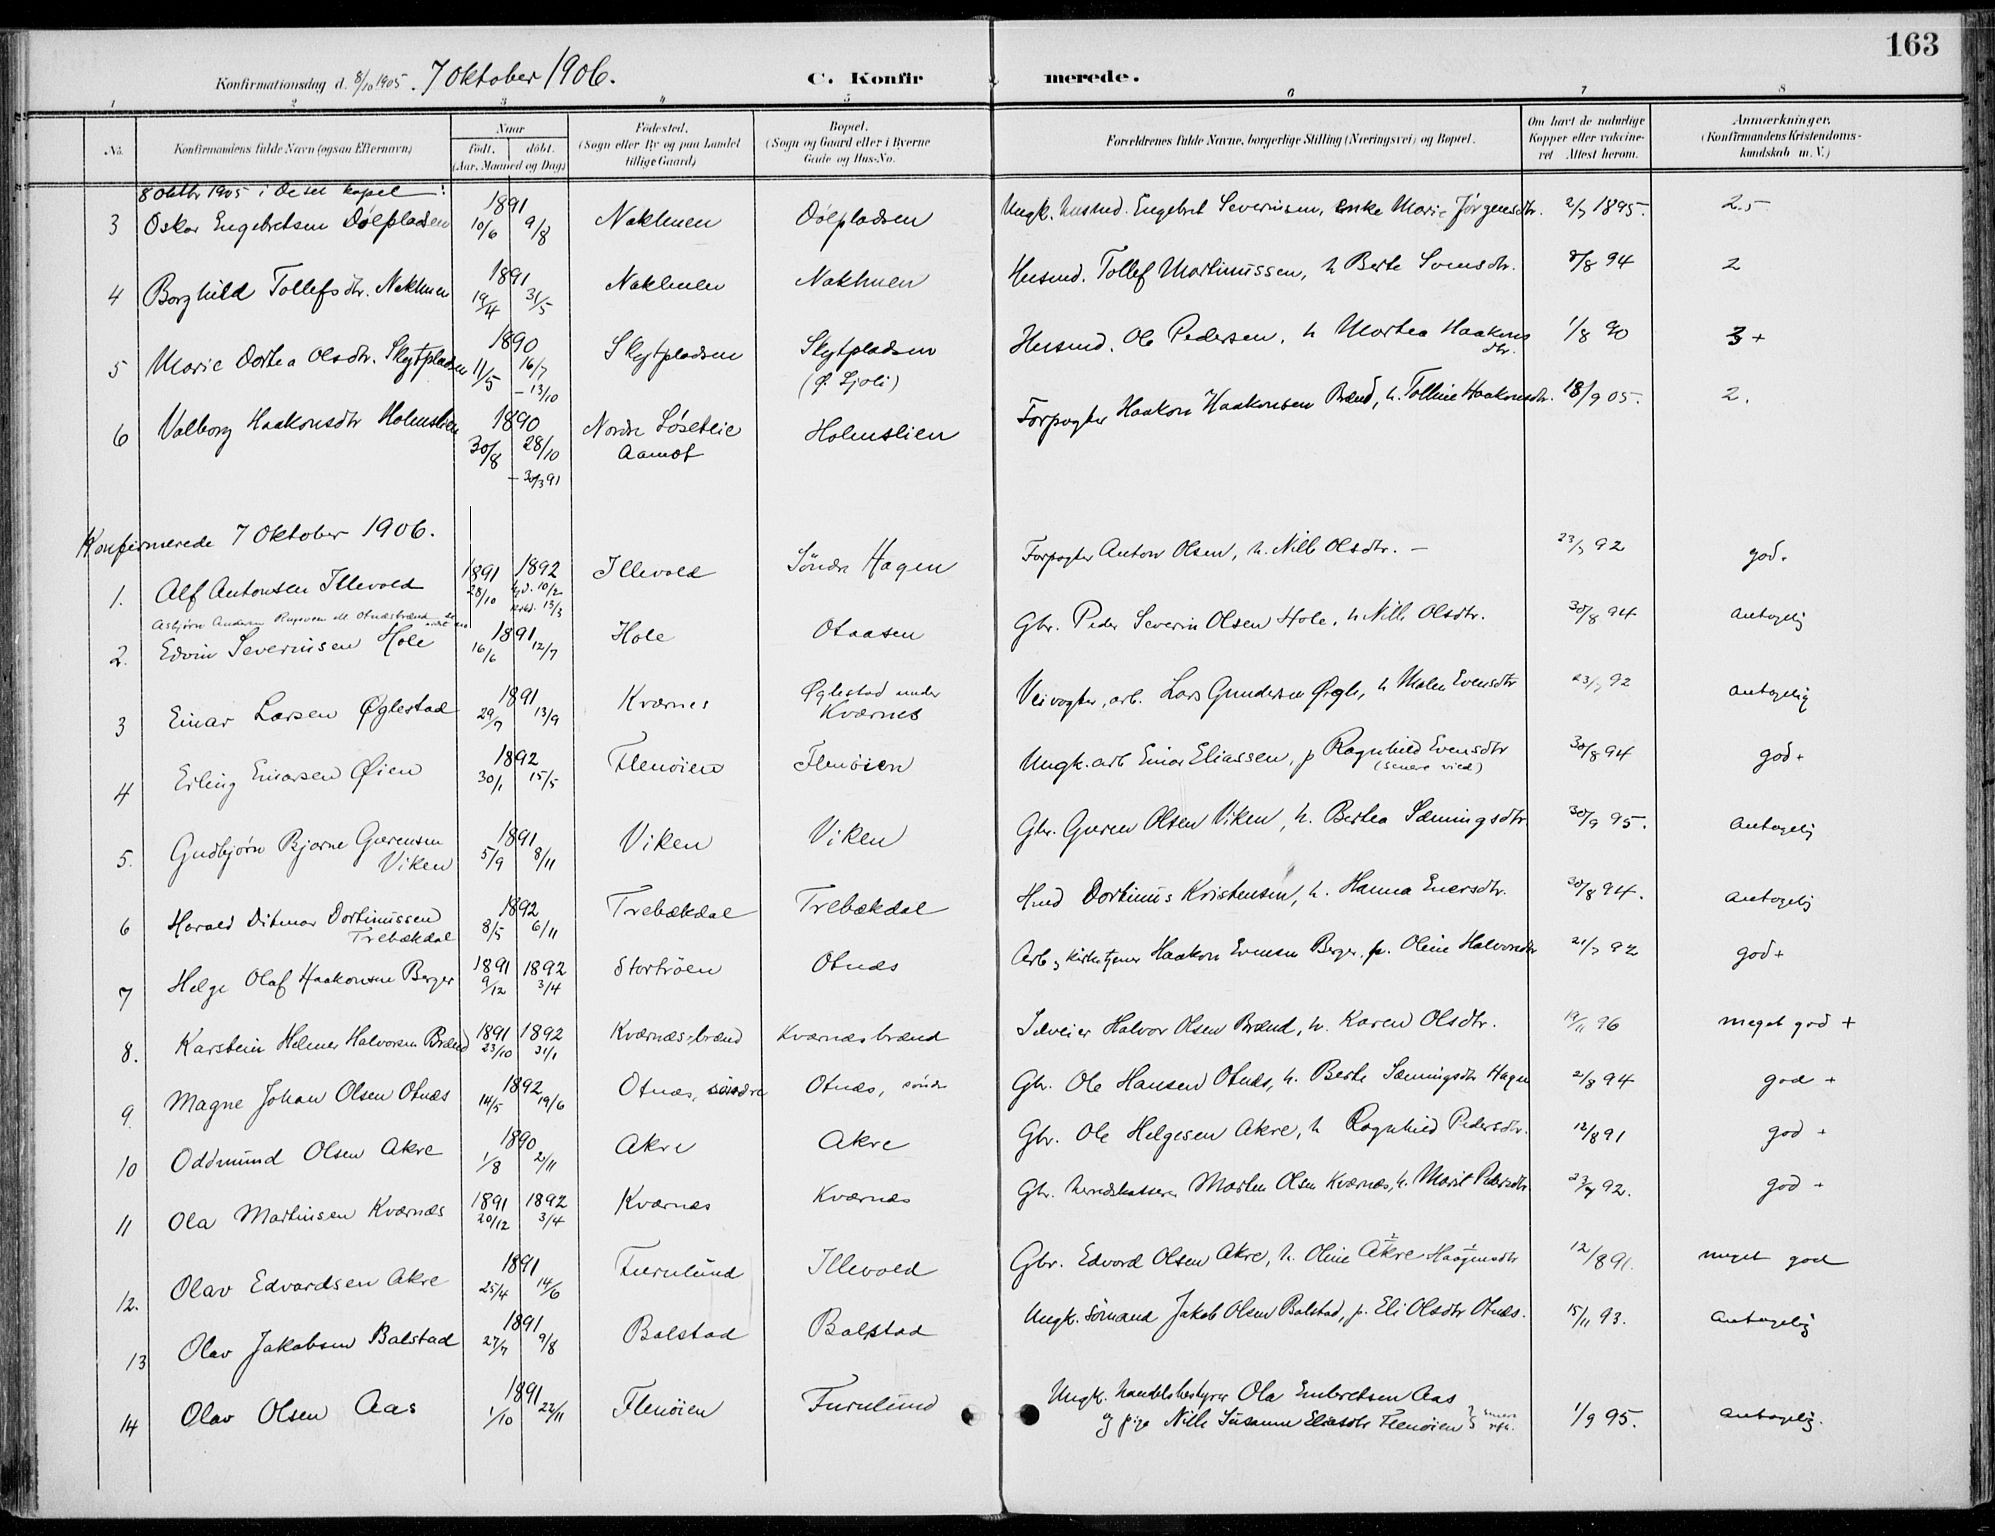 163
Konfirmationsdag d. 8/10 1905. 7 Oktober 1906. C. Konfir merede.
1 2 3 4 5 6 7 8
No. Konfirmandens fulde Navn (ogsaa Efternavn) Naar födt. döbt. (Aar, Maaned og Dag) Födested. (Sogn eller By og paa Landet tillige Gaard) Bopæl. (Sogn og Gaard eller i Byerne Gade og Hus-No. Forældrenes fulde Navne, borgerlige Stilling (Næringsvei) og Bopæl. Om havt de naturlige Kopper eller vaccineret Attest herom. Anmærkninger. (Konfirmandens Kristendomskundskab m. V.)
8 Oktbr 1905 i Deset kapel:
3 Oskar Engebretsen Dölpladsen 1891 10/6 9/8 Nakhuen Dölpladsen Ungk. husmd. Engebret Severinsen, enke Marie Jörgensdtr. 2/7 1895. 2.5
4 Borghild Tollefsdtr. Nakhuen 1891 19/4 31/5 Nakhuen Nakhuen Husmd. Tollef Martinussen, h Berte Svensdtr. 8/8 94 2
5 Marie Dortea Olsdtr. Skytpladsen 1890 11/5 16/7 – 13/10 Skytpladsen Skytpladsen Husmd. Ole Pedersen, h Martea Haakonsdtr. 1/8 90 3+
6 Valborg Haakonsdtr Holmslien 1890 30/8 28/10 – 30/3 91 Nordre Löset Aamot Holmslien Forpagter Haakon Haakonsen Brænd, h. Tolline Haakonsdtr. 18/9 05. 2.
Konfirmerede 7 Oktober 1906.
1. Alf Antonsen Illevold 1891 28/10 1892 10/2 13/3 Illevold Söndre Hagen Forpagter Anton Olsen, h. Nille Olsdtr. – 23/7 92 god.
2. Edvin Severinsen Hole 1891 16/6 12/7 Hole Otaasen Gbr. Peder Severin Olsen Hole, h Nille Olsdtr. 30/8 94 antagelig
3 Einar Larsen Øglestad 1891 29/7 13/9 Kværnes Øglestad under Kværnes Veivogter, arb. Lars Gundersen Øgle, h Malen Evensdtr 23/7 92 antagelig
4 Erling Einarsen Øien 1892 30/1 15/5 Flenöien Flenöien Ungk. arb Einar Eliassen, p Ragnhild Evensdtr (senere viet) 30/8 94 god +
5. Gudbjörn Bjarne Gurensen Viken 1891 5/9 8/11 Viken Viken Gbr. Guren Olsen Viken, h. Bertea Sæmingsdtr 30/9 95. antagelig
6 Harald Ditmar Dortinussen Trebækdal 1892 8/5 6/11 Trebækdal Trebækdal Hmd Dortinus Kristensen, h. Hanna Enersdtr. 30/8 94. antagelig
7 Helge Olaf Haakonsen Berger 1891 9/12 1892 3/4 Störtröen Otnæs Arb og Kirketjener Haakon Evensen Berger, p. Oline Halvorsdtr 21/7 92 god +
8. Karstein Helmer Halvorsen Brænd 1891 23/10 1892 31/1 Kværnæsbrænd Kværnæsbrænd Selveier Halvor Olsen Brænd, h. Karen Olsdtr. 19/11 96 meget god +
9. Magne Johan Olsen Otnæs 1892 14/5 19/6 Otnæs, söndre Otnæs, söndre Gbr. Ole Hansen Otnæs, h. Berte Sæmingsdtr Hagen 2/8 94 god +
10 Oddmund Olsen Akre 1890 1/8 2/11 Akre Akre Gbr. Ole Helgesen Akre, h Ragnhild Pedersdtr. 12/8 91 god +
11 Ola Martinsen Kværnæs 1891 20/12 1892 3/4 Kværnæs Kværnæs Gbr. herredskasserer Marten Olsen Kværnæs, h. Marit Pedersdtr. 23/7 92. god +
12. Olav Edvardsen Akre 1891 25/4 14/6 Furulund Illevold Gbr. Edvard Olsen Akre, h. Oline Akre Haagensdtr 12/8 91. meget god
13 Olav Jakobsen Balstad 1891 27/7 9/8 Balstad Balstad Ungk. sömand Jakob Olsen Balstad, p. Eli Olsdtr Otnæs. 15/11 93. antagelig
14 Olav Olsen Aas 1891 1/10 22/11 Flenöien Furulund Ungk. handelsbestyrer Ola Embretsen Aas
og pige Nille Susanne Eliasdtr Flenöien 1/9 95. antagelig.